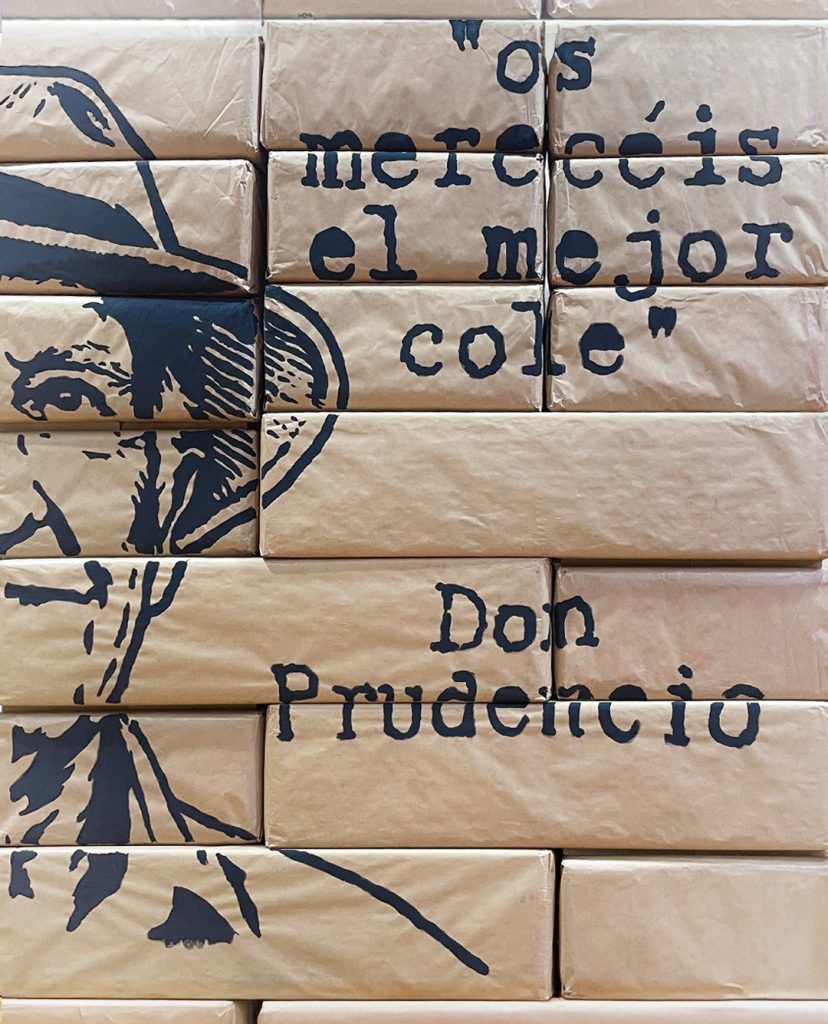 "os
merecéis
el mejor
cole"
Don
Prudencio